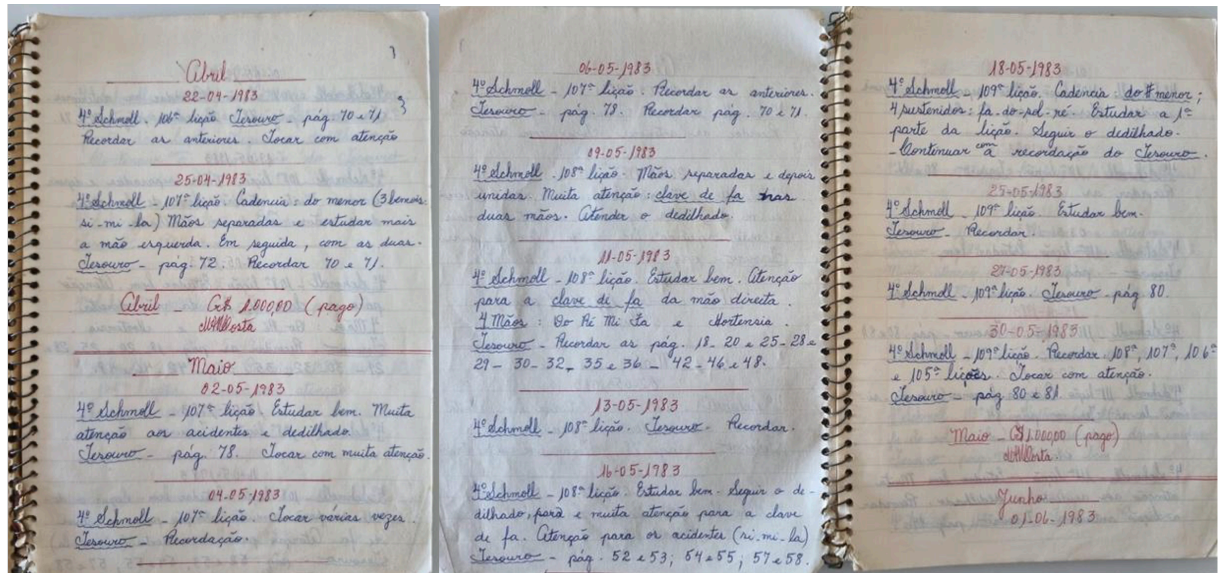 Abril
22-04-1983
4º Schmoll. 106ª lição Tesouro - pág. 70 e 71
Recordar as anteriores. Tocar com atenção
25-04-1983
4º Schmoll - 107ª lição. Cadencia: do menor (3 bemois
si-mi-la) Mãos separadas e estudar mais
a mão esquerda. Em seguida, com as duas.
Tesouro - pág. 72. Recordar 70 e 71.
Abril - C$ 1.000,00 (pago)
Maio
02-05-1983
4º Schmoll - 107ª lição Estudar bem. Muita
atenção aos acidentes e dedilhado.
Tesouro - pág. 78. Tocar com muita atenção.
04-05-1983
4º Schmoll - 107ª lição Tocar várias vezes.
Tesouro - Recordação.
06-05-1983
4º Schmoll - 107ª lição. Recordar as anteriores.
Tesouro - pág. 78. Recordar pág. 70 e 71.
09-05-1983
4º Schmoll - 108ª lição. Mãos separadas e depois
unidas. Muita atenção: clave de fa nas
duas mãos. Atender o dedilhado.
11-05-1983
4º Schmoll - 108ª lição. Estudar bem. Atenção
para a clave de fa da mão direita.
4 Mãos: Do Ré Mi Fa e Hortensia.
Tesouro - Recordar as pág. 18-20 e 25-28 e
29-30-32-35 e 36-42-46 e 48.
13-05-1983
4º Schmoll - 108ª lição. Tesouro - Recordar.
16-05-1983
4º Schmoll - 108ª lição. Estudar bem. Seguir o de-
dilhado, para e muita atenção para a clave
de fa. Atenção para os acidentes (si-mi-la)
Tesouro - pág. 52 e 53; 54 e 55; 57 e 58.
18-05-1983
4º Schmoll - 109ª lição. Cadencia: do # menor;
4 sustenidos: fa-do-sol-ré. Estudar a 1ª
parte da lição. Seguir o dedilhado.
Continuar com a recordação do Tesouro.
25-05-1983
4º Schmoll - 109ª lição. Estudar bem.
Tesouro - Recordar
27-05-1983
4º Schmoll - 109ª lição. Tesouro - pág 80.
30-05-1983
4º Schmoll - 109ª lição. Recordar 108ª, 107ª, 106ª
e 105ª lições. Tocar com atenção.
Tesouro - pág 80 e 81.
Maio - C$ 1.000,00 (pago)
Junho
01-06-1983